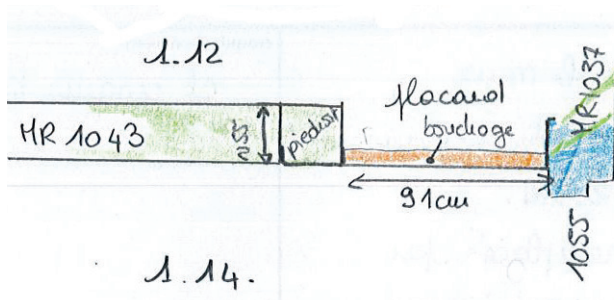 1.12
MR 1043
255
piedroit
placard
bouchage
91cm
MR1037
1055
1.14.